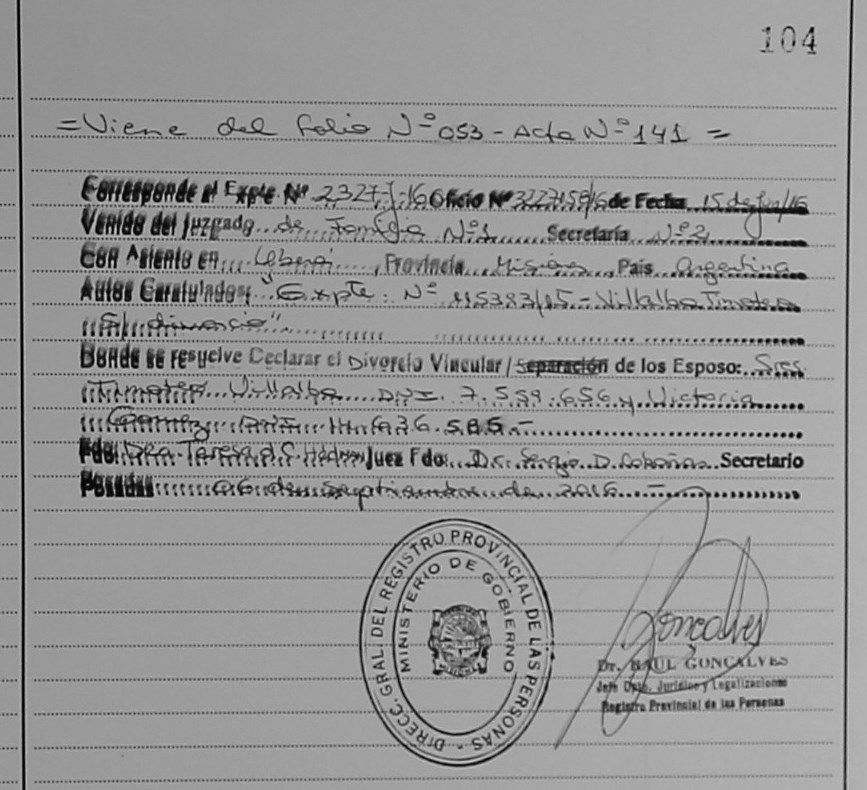 104
= Viene del folio Nº 053 - Acta Nº 141 =
Corresponde al Expte Nº 2327-J-16 Oficio Nº de Fecha 15 de Jun/16
Venido del Juzgado de Familia Nº 1 Secretaría Nº 2
Con Asiento en , Provincia Misiones País Argentina
Autos Caratulados: "Expte: Nº 115383/15 - Villalba Timoteo
S/ divorcio"
Donde se resuelve Declarar el Divorcio Vincular / Separación de los Esposo: Sres
Timoteo Villalba DNI. 7.559.656 y Victoria
Gomez DNI 585.-
Fdo: Dra. Teresa Juez Fdo: Dr. Sergio D. Secretario
Posadas 06 de Septiembre de 2016 -
DIRECC. GRAL. DEL REGISTRO PROVINCIAL DE LAS PERSONAS
MINISTERIO DE GOBIERNO
Gonçalves
Dr. RAUL GONÇALVES
Jefe Dpto. Jurídico y Legalizaciones
Registro Provincial de las Personas